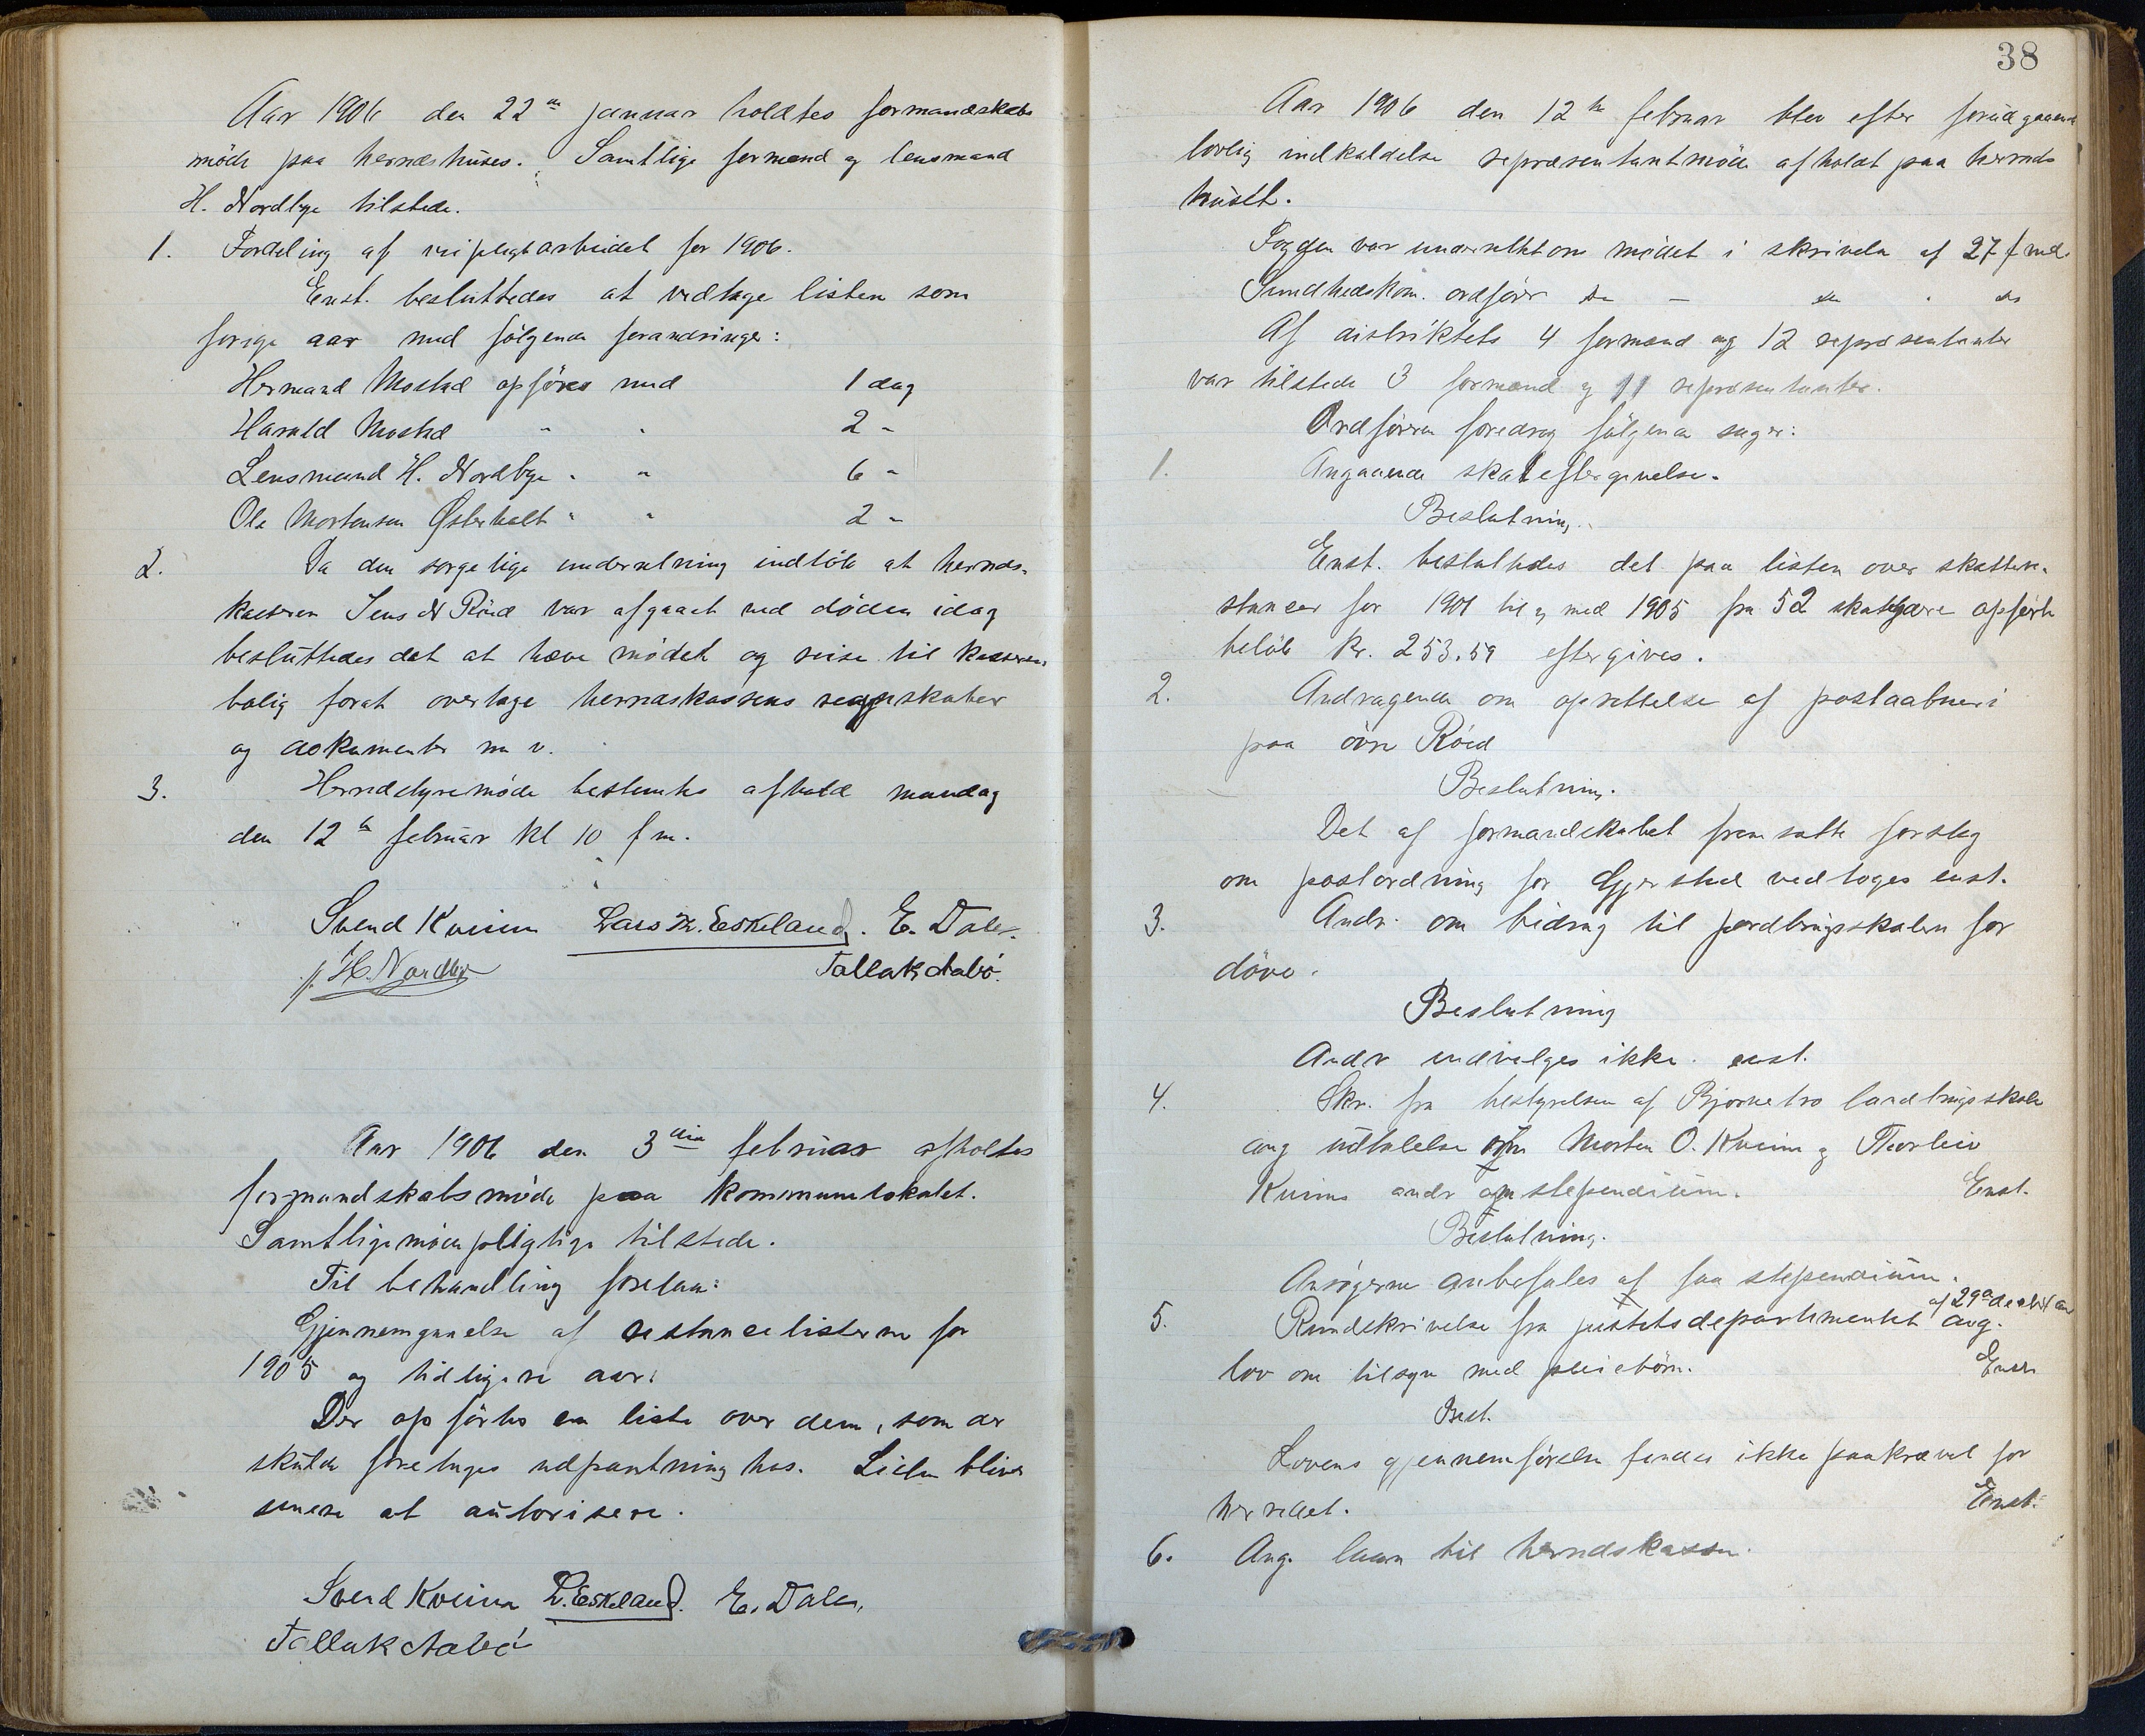 Aar 1906 den 22de januar holdtes formandskabs
møde paa herredshuset. Samtlige formænd og lensmand
H. Nordbye tilstede.
1. Fordeling af veipligtarbeidet for 1906.
Enst. besluttedes at vedtage listen som
forige aar med følgende forandringer:
Hermand Mostad opføres med 1 dag
Harald Mostad " " 2 "
Lensmand H. Nordbye " " 6 "
Ole Mortensen Østerholt " " 2 "
2. Da den sorgelige underretning indløb at herreds-
kasseren Jens N Röed var afgaaet ved døden idag
besluttedes det at hæve mødet og reise til kasserens
bolig forat overtage herredskassens regnskaber
og dokumenter m v.
3. Herredstyremøde bestemtes afholdt mandag
den 12te februar kl 10 f m.
Svend Kveim Lars Eskeland. E. Dalen.
H. Nordbye Tallak Aabø.
Aar 1906 den 3die februar afholtes
formandskabsmøde paa kommunelokalet.
Samtlige mødepligtige tilstede.
Til behandling forelaa:
Gjennemgaaelse af restancelisterne for
1905 og tidligere aar.
Der opførtes en liste over dem, som der
skulde foretages udpantning hos. Listen bliver
senere at autorisere.
Svend Kveim L. Eskeland. E. Dalen.
Tallak Aabø
38
Aar 1906 den 12te februar blev efter forudgaaende
lovlig indkaldelse repræsentantmøde afholdt paa herreds
huset.
Fogden var underrettet om mødet i skrivelse af 27 f md.
Sundhedskom. ordfører do — do " do
Af distriktets 4 formænd og 12 repræsentanter
var tilstede 3 formænd og 11 repræsentanter.
Ordføreren foredrog følgende sager:
1. Angaaende skatteftergivelse.
Beslutning.
Enst. besluttedes det paa listen over skattere-
stancer for 1901 til og med 1905 fra 52 skatydere opførte
beløb Kr. 253.59 eftergives.
2. Andragende om oprettelse af postaabneri
paa övre Röed
Beslutning.
Det af formandskabet fremsatte forslag
om postordning for Gjerstad vedtoges enst.
3. Andr. om bidrag til jordbrugsskolen for
döve.
Beslutning
Andr indvilges ikke. enst.
4. Skr. fra bestyrelsen af Bjornebo landbrugsskole
ang udtalelse om Morten O. Kveim og Thorleiv
Kveims andr om stependium. Enst.
Beslutning.
Ansøgerne anbefales at faa stependium.
5. Rundskrivelse fra justitsdepartementet af 29de decbr f aar ang.
lov om tilsyn med pleiebörn. Enst.
Besl.
Lovens gjennemførelse findes ikke paakrævet for
herredet. Enst.
6. Ang. laan til herredskassen.